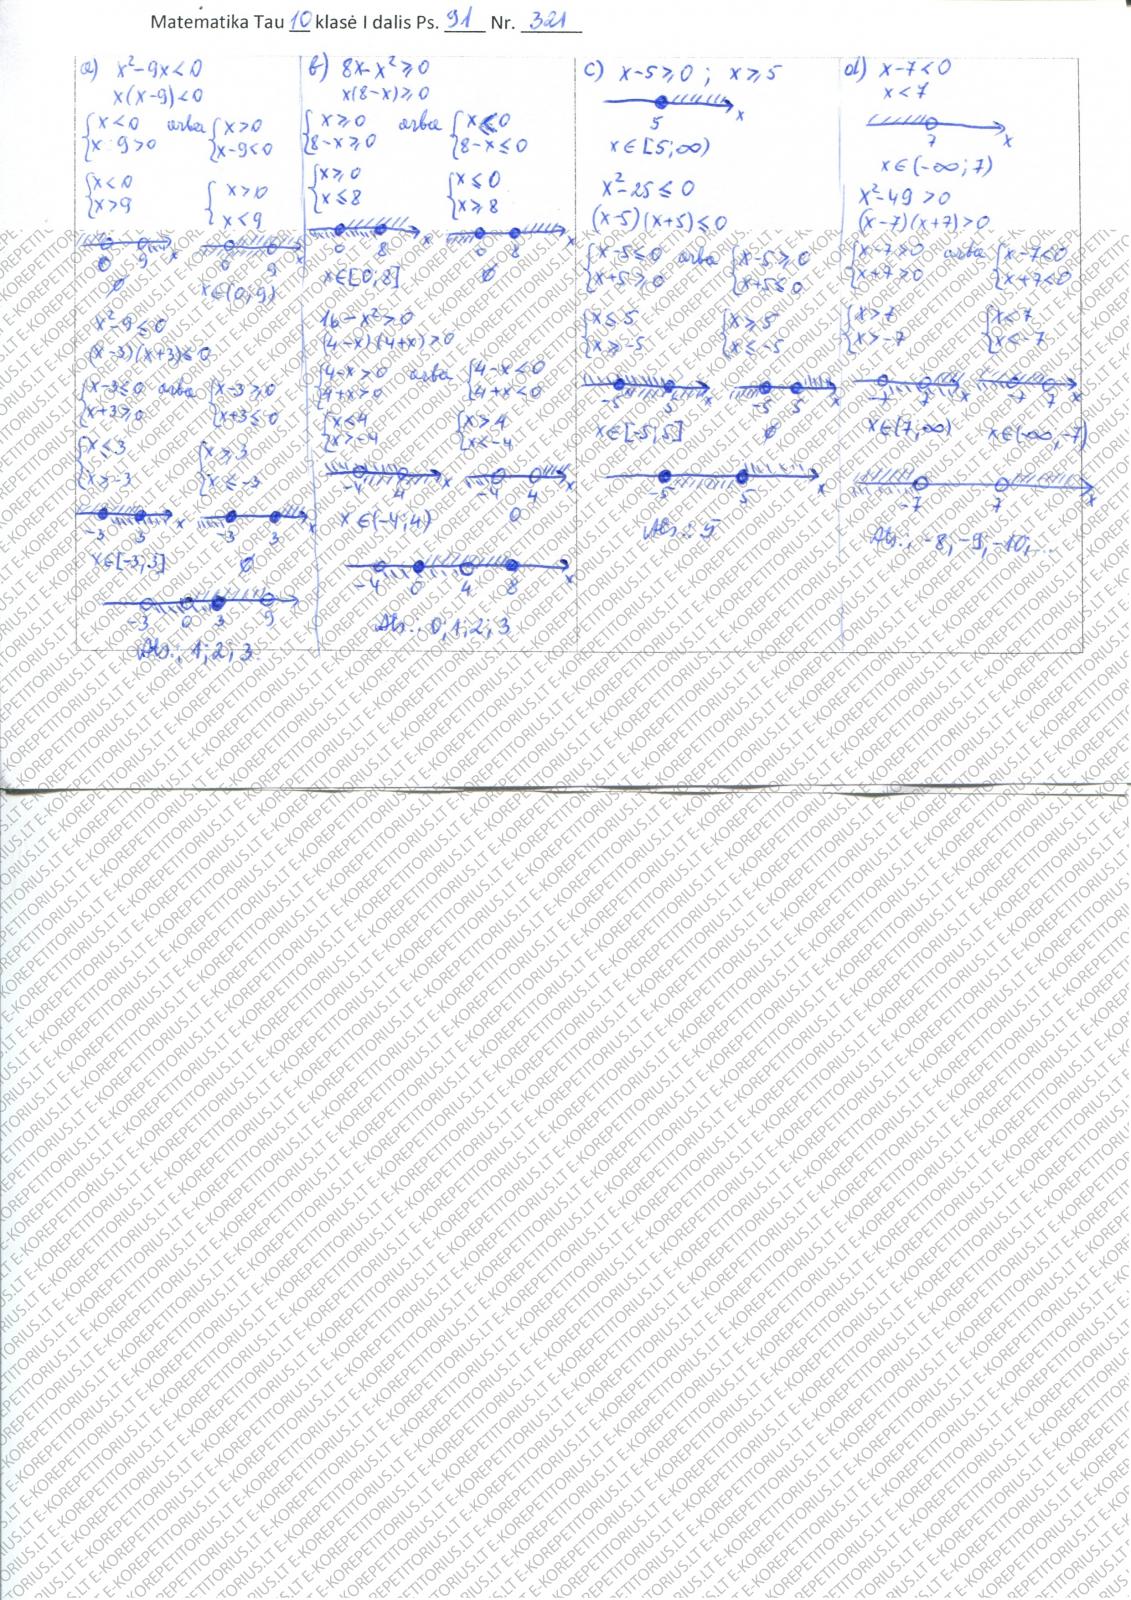 Matematika Tau 10 klasė I dalis Ps. 91 Nr. 321
a) x²-9x<0
x(x-9)<0
{x<0 arba {x>0
{x-9>0 {x-9<0
{x<0 {x>0
{x>9 {x<9
0 9 x 0 9 x
∅ x∈(0;9)
x²-9≤0
(x-3)(x+3)≤0
{x-3≤0 arba {x-3≥0
{x+3≥0 {x+3≤0
{x≤3 {x≥3
{x≥-3 {x≤-3
-3 3 x -3 3 x
x∈[-3;3] ∅
-3 0 3 9
Ats.: 1; 2; 3.
b) 8x-x²≥0
x(8-x)≥0
{x≥0 arba {x≤0
{8-x≥0 {8-x≤0
{x≥0 {x≤0
{x≤8 {x≥8
0 8 x 0 8 x
x∈[0;8] ∅
16-x²>0
(4-x)(4+x)>0
{4-x>0 arba {4-x<0
{4+x>0 {4+x<0
{x<4 {x>4
{x>-4 {x<-4
-4 4 x -4 4 x
x∈(-4;4) ∅
-4 0 4 8 x
Ats.: 0; 1; 2; 3
c) x-5≥0 ; x≥5
5 x
x∈[5;∞)
x²-25≤0
(x-5)(x+5)≤0
{x-5≤0 arba {x-5≥0
{x+5≥0 {x+5≤0
{x≤5 {x≥5
{x≥-5 {x≤-5
-5 5 x -5 5 x
x∈[-5;5] ∅
-5 5 x
Ats.: 5
d) x-7<0
x<7
7 x
x∈(-∞;7)
x²-49>0
(x-7)(x+7)>0
{x-7>0 arba {x-7<0
{x+7>0 {x+7<0
{x>7 {x<7
{x>-7 {x<-7
-7 7 x -7 7 x
x∈(7;∞) x∈(-∞;-7)
-7 7 x
Ats.: -8, -9, -10, ...
E-KOREPETITORIUS.LT